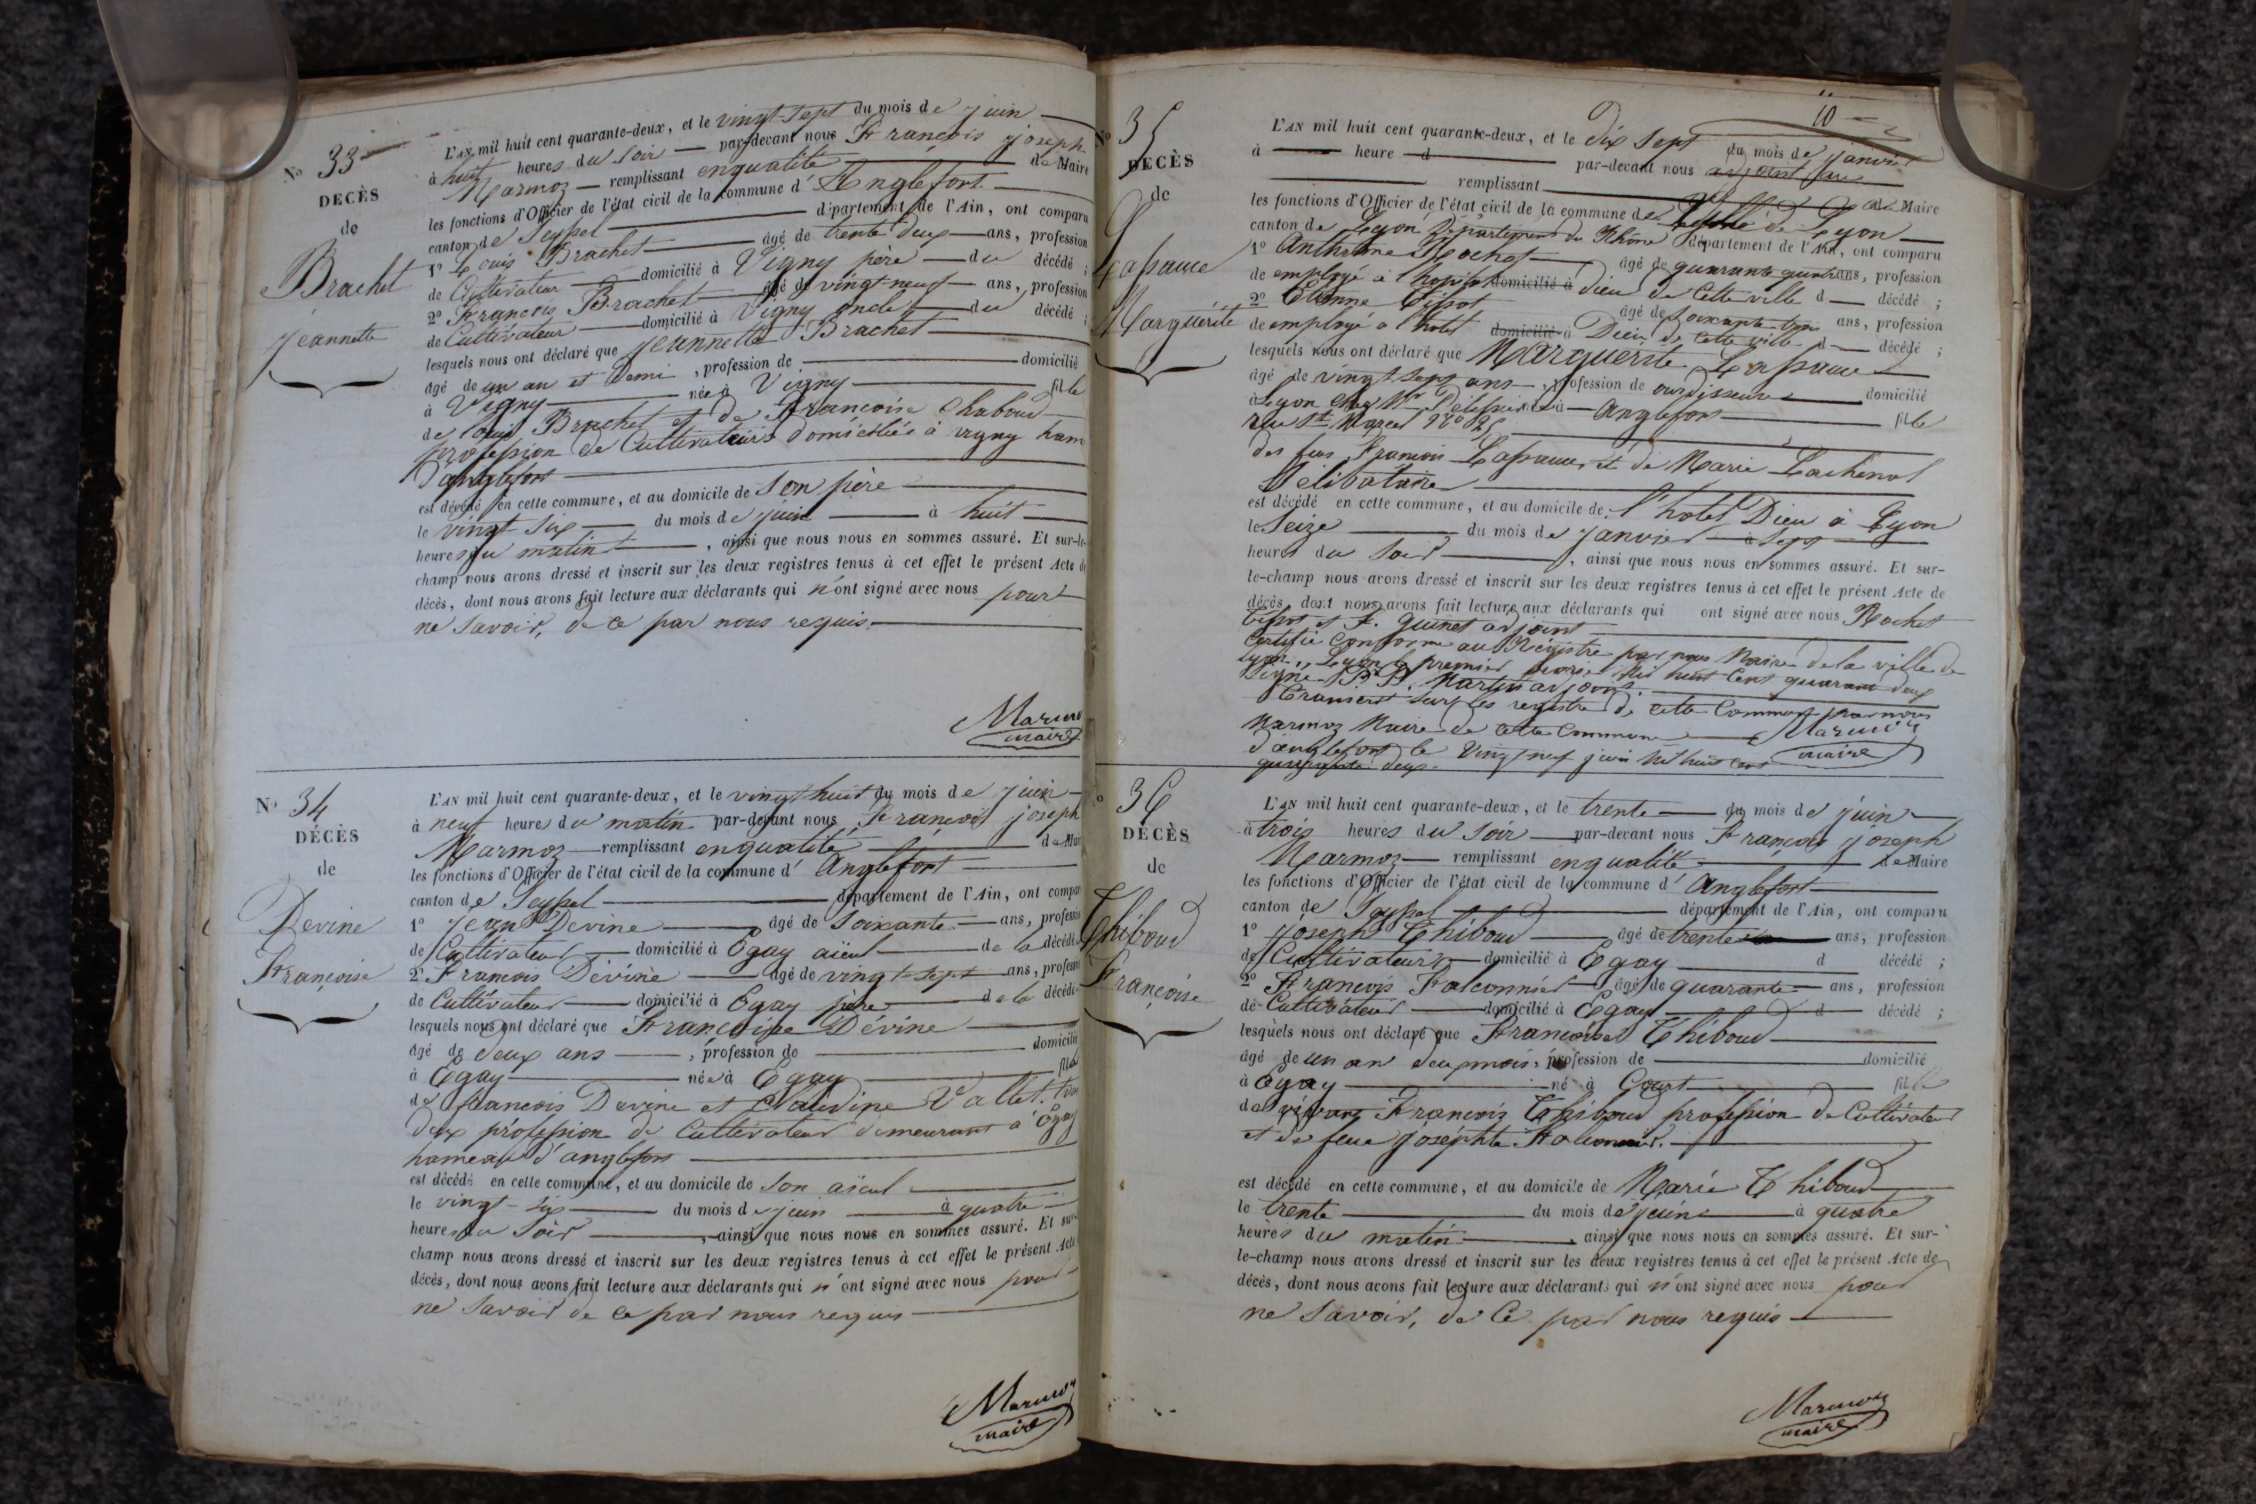 N° 33
DECÈS
de
Brachet
Jeannette
L'AN mil huit cent quarante-deux, et le vingt-sept du mois de juin
à huit heures du soir par-devant nous François joseph
Marmoz remplissant enqualité de Maire
les fonctions d'Officier de l'état civil de la commune d'Anglefort
canton de Seyssel département de l'Ain, ont comparu
1° Louis Brachet âgé de trente deux ans, profession
de Cultivateur domicilié à Vigny père du décédé ;
2° François Brachet âgé de vingt-neuf ans, profession
de Cultivateur domicilié à Vigny oncle du décédé ;
lesquels nous ont déclaré que Jeannette Brachet
âgé de un an et demi, profession de domicilié
à Vigny née à Vigny fille
de Louis Brachet et de Françoise Chaboud
profession de Cultivateurs domiciliés à vigny ham
d'anglefort
est décédé en cette commune, et au domicile de Son père
le vingt Six du mois de juin à huit
heures du matin, ainsi que nous nous en sommes assuré. Et sur-le-
champ nous avons dressé et inscrit sur les deux registres tenus à cet effet le présent Acte de
décès, dont nous avons fait lecture aux déclarants qui n'ont signé avec nous pour
ne Savoir, de ce par nous requis.
Marmoz
maire
N° 34
DÉCÈS
de
Devine
Françoise
L'AN mil huit cent quarante-deux, et le vingt huit du mois de juin
à neuf heure du matin par-devant nous François joseph
Marmoz remplissant enqualité de Mai
les fonctions d'Officier de l'état civil de la commune d'Anglefort
canton de Seyssel département de l'Ain, ont compa
1° Jean Devine âgé de Soixante ans, profession
de Cultivateur domicilié à Egay aïeul de la décédé
2° François Dévine âgé de vingt-sept ans, profess
de Cultivateur domicilié à Egay père de la décédé
lesquels nous ont déclaré que Françoise Dévine
âgé de deux ans, profession de domicilié
à Egay née à Egay fille
de francois Devine et Claudine Vallet. tous
deux profession de Cultivateur demeurant à Egay
hameau d'anglefort
est décédé en cette commune, et au domicile de Son aïeul
le vingt-six du mois de juin à quatre
heures du Soir, ainsi que nous nous en sommes assuré. Et sur
champ nous avons dressé et inscrit sur les deux registres tenus à cet effet le présent Acte
décès, dont nous avons fait lecture aux déclarants qui n'ont signé avec nous pour
ne Savoir de ce par nous requis
Marmoz
maire
10
N° 35
DECÈS
de
Lapauce
Marguerite
L'AN mil huit cent quarante-deux, et le dix Sept du mois de janvier
à heure d par-devant nous adjoint
remplissant de Maire
les fonctions d'Officier de l'état civil de la commune de Lyon
canton de Lyon Département du Rhône département de l'Ain, ont comparu
1° Rochet âgé de quarante quatre ans, profession
de employé à l'hospice domicilié à dieu de Cette ville d décédé ;
2° Etienne Tissot âgé de Soixante-trois ans, profession
de employé a l'hotel domicilié à Dieu de Cette ville d décédé ;
lesquels nous ont déclaré que Marguerite Lapauce
âgé de vingt Sept ans, profession de ourdisseuse domicilié
à Lyon chez Mr née à Anglefort fille
rue St Marcel
des feus François Lapauce et de Marie Lachenal
Célibataire
est décédé en cette commune, et au domicile de l'hotel Dieu à Lyon
le Seize du mois de janvier à Sept
heures du Soir, ainsi que nous nous en sommes assuré. Et sur-
le-champ nous avons dressé et inscrit sur les deux registres tenus à cet effet le présent Acte de
décès, dont nous avons fait lecture aux déclarants qui ont signé avec nous Rochet
Tissot et F. Guinet adjoint
Certifié Conforme au Registre par nous Maire de la ville de
Lyon, Lyon le premier Mil huit Cent quarante deux
Signé Martin adjoint.
Transcrit Sur les registre de cette Commune par nous
Marmoz Maire de cette Commune
d'anglefort le Vingt neuf juin Mil huit Cent
quarante deux.
Marmoz
maire
N° 36
DÉCÈS
de
Thiboud
Françoise
L'AN mil huit cent quarante-deux, et le trente du mois de juin
à trois heures du Soir par-devant nous François joseph
Marmoz remplissant enqualité de Maire
les fonctions d'Officier de l'état civil de la commune d'Anglefort
canton de Seyssel département de l'Ain, ont comparu
1° Joseph Thiboud âgé de trente ans, profession
de Cultivateur domicilié à Egay d décédé ;
2° François Falconnier âgé de quarante ans, profession
de Cultivateur domicilié à Egay d décédé ;
lesquels nous ont déclaré que Françoise Thiboud
âgé de un an mois, profession de domicilié
à Egay né à fille
de vivant François Thiboud profession de Cultivateur
et de feue joséphte Falconnier.
est décédé en cette commune, et au domicile de Marie Thiboud
le trente du mois de juin à quatre
heures du matin, ainsi que nous nous en sommes assuré. Et sur-
le-champ nous avons dressé et inscrit sur les deux registres tenus à cet effet le présent Acte de
décès, dont nous avons fait lecture aux déclarants qui n'ont signé avec nous pour
ne Savoir, de Ce par nous requis
Marmoz
maire